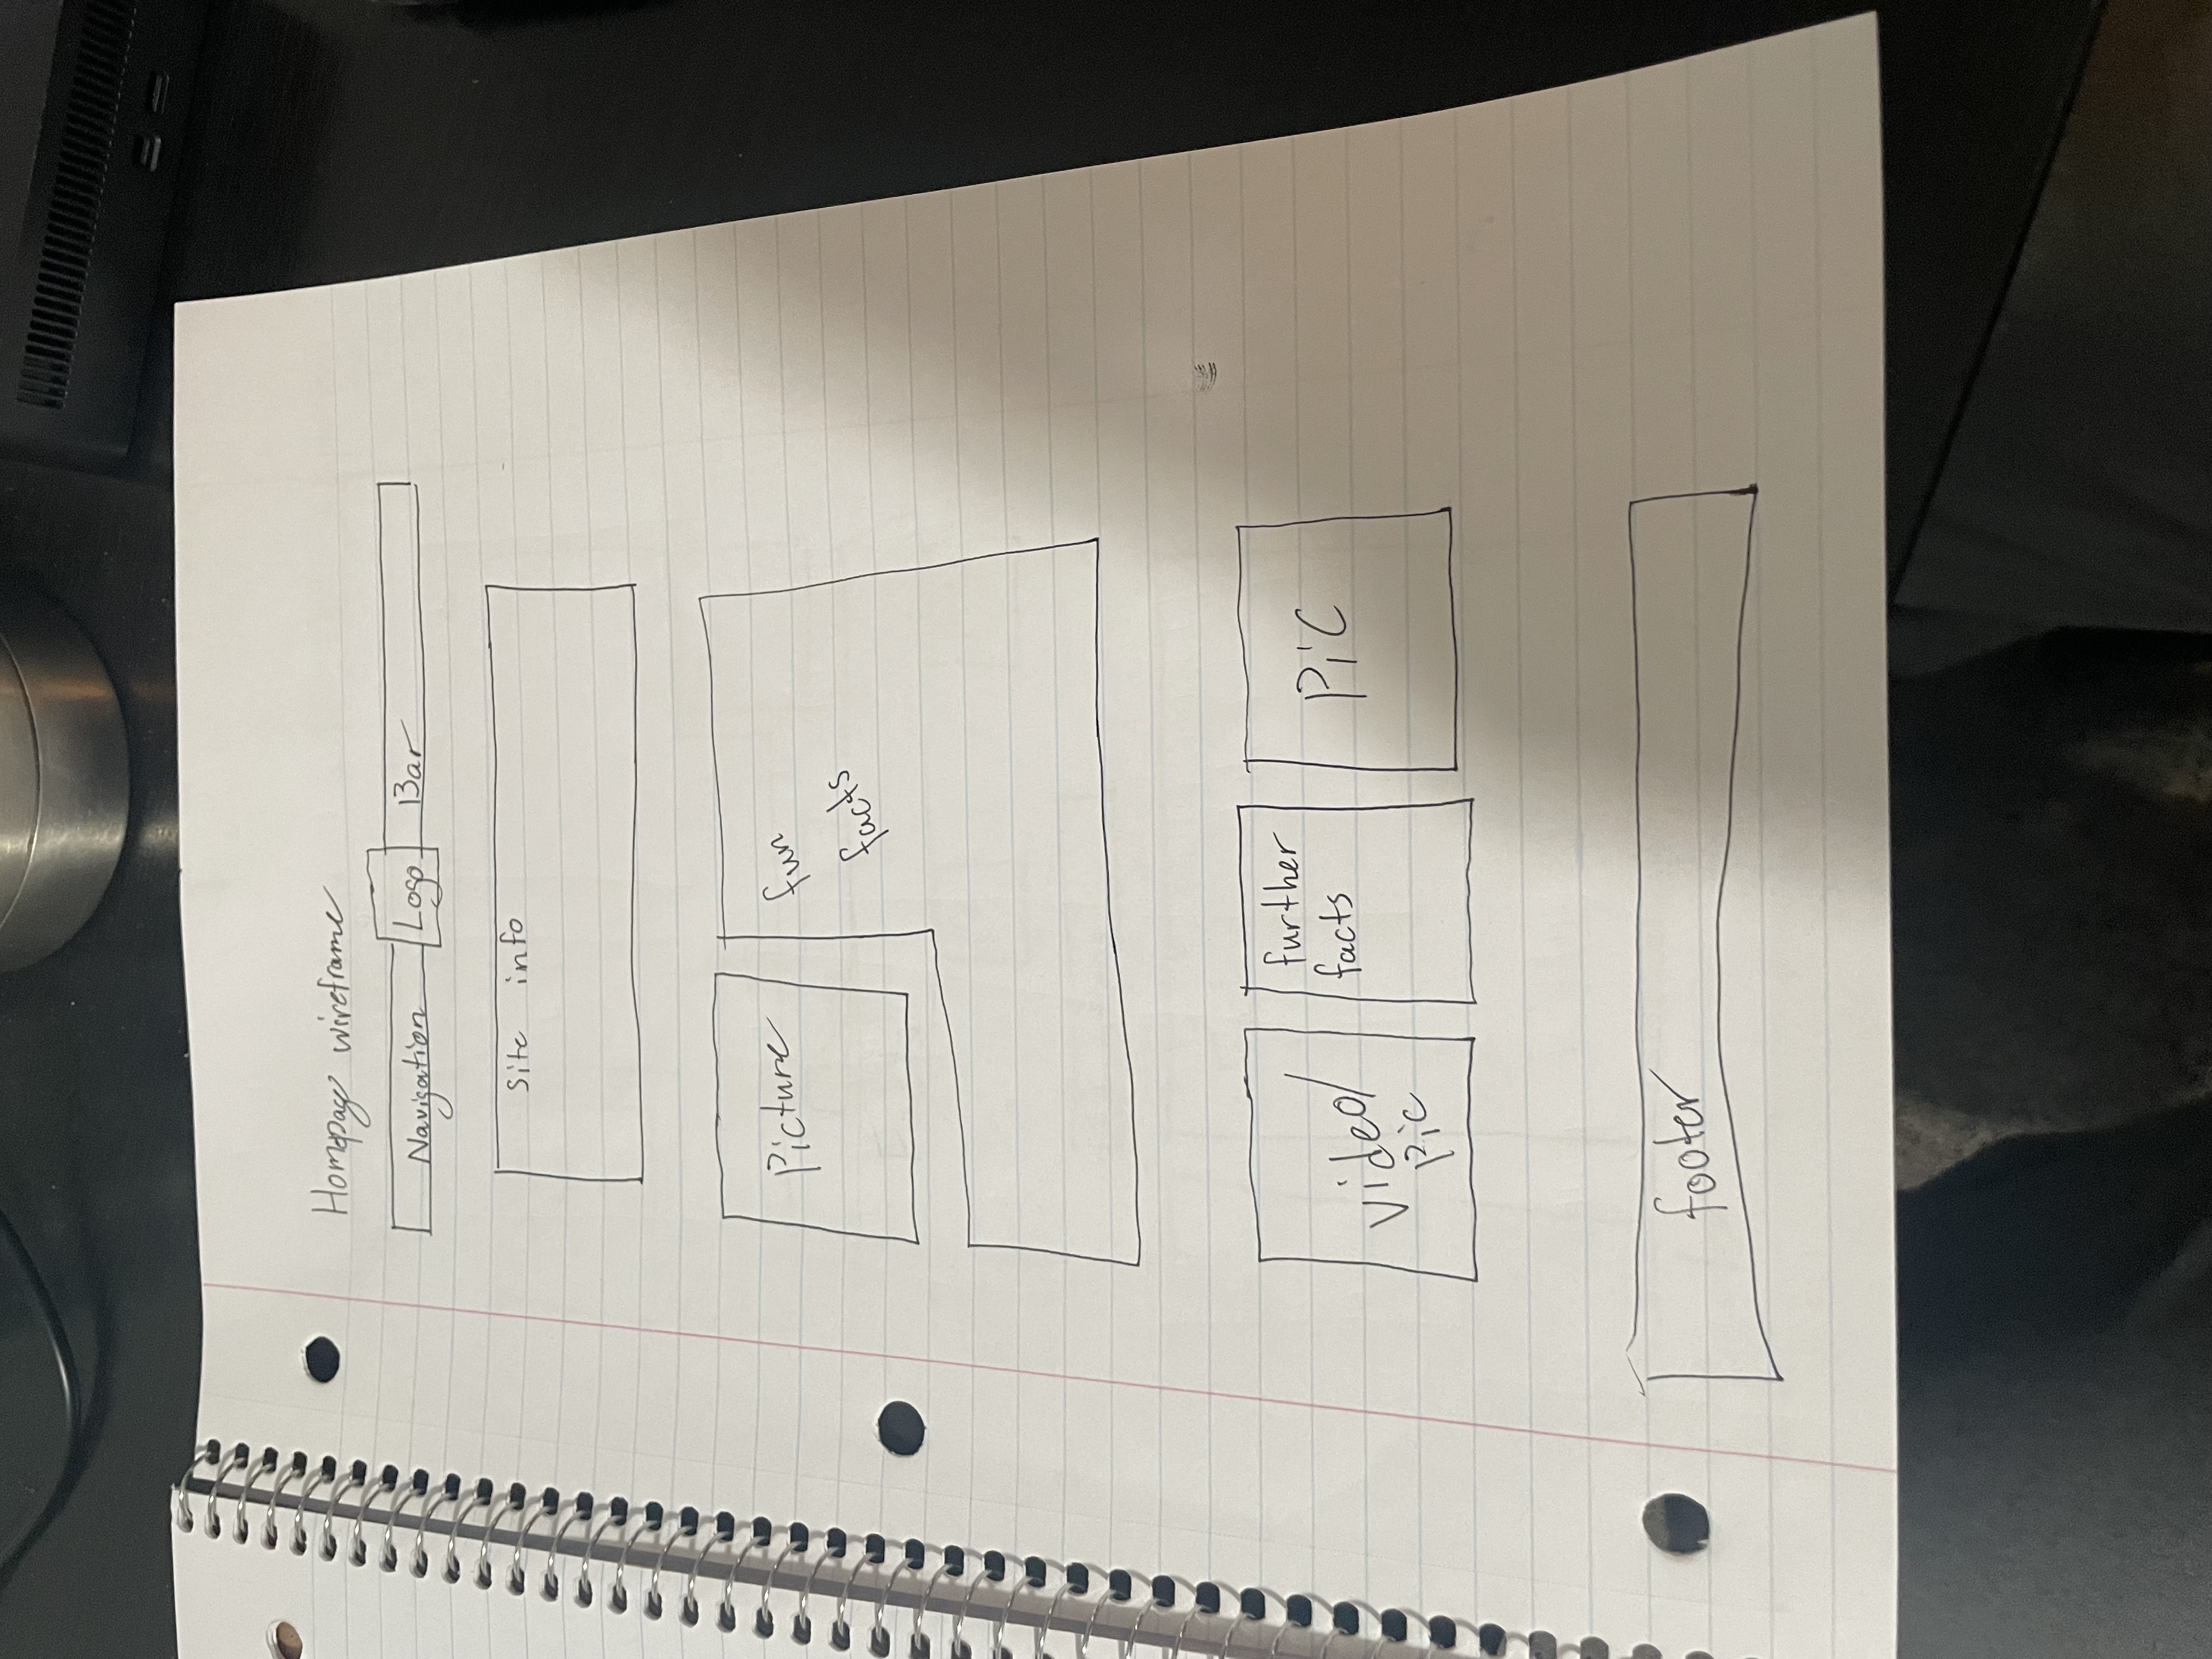 Homepage wireframe
Navigation Logo Bar
Site info
Picture
fun
facts
video/
Pic
further
facts
PiC
footer